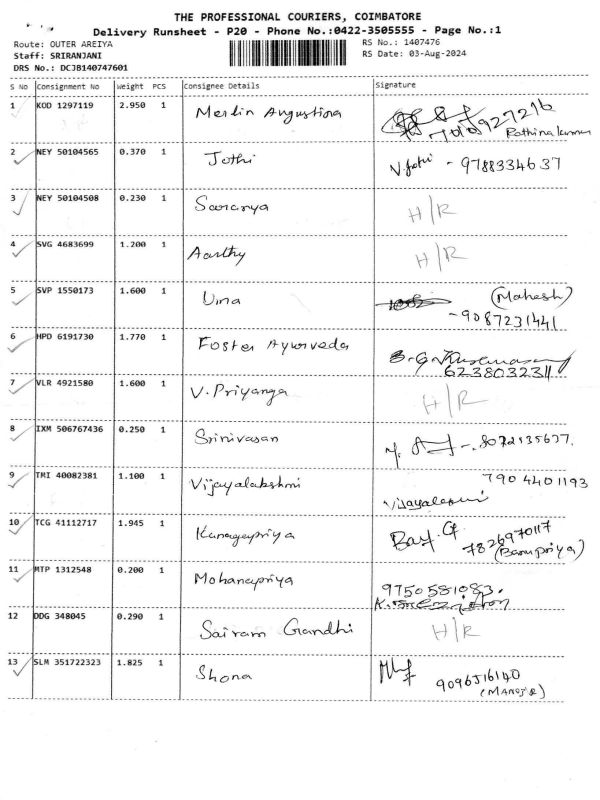 THE PROFESSIONAL COURIERS, COIMBATORE
Delivery Runsheet - P20 - Phone No.:0422-3505555 - Page No.:1
Route: OUTER AREIYA
RS No.: 1407476
Staff: SRIRANJANI
RS Date: 03-Aug-2024
DRS No.: DCJB140747601
S No Consignment No Weight PCS Consignee Details Signature
1 KOD 1297119 2.950 1 Merlin Angustiona
927216
Rathinakumar
2 NEY 50104565 0.370 1 Jothi V.Jothi - 9788334637
3 NEY 50104508 0.230 1 Saranya H/R
4 SVG 4683699 1.200 1 Aarthy H/R
5 SVP 1550173 1.600 1 Uma (Mahesh)
- 9087231441
6 HPD 6191730 1.770 1 Foster Ayurveda
6238032311
7 VLR 4921580 1.600 1 V.Priyanga H/R
8 IXM 506767436 0.250 1 Srinivasan
9 TRI 40082381 1.100 1 Vijayalakshmi 7904401193
10 TCG 41112717 1.945 1 Kanagapriya
7826970117
(Banupriya)
11 MTP 1312548 0.200 1 Mohanapriya 9750581083.
12 DDG 348045 0.290 1 Sairam Gandhi H/R
13 SLM 351722323 1.825 1 Shona
9096516140
(MANOJ